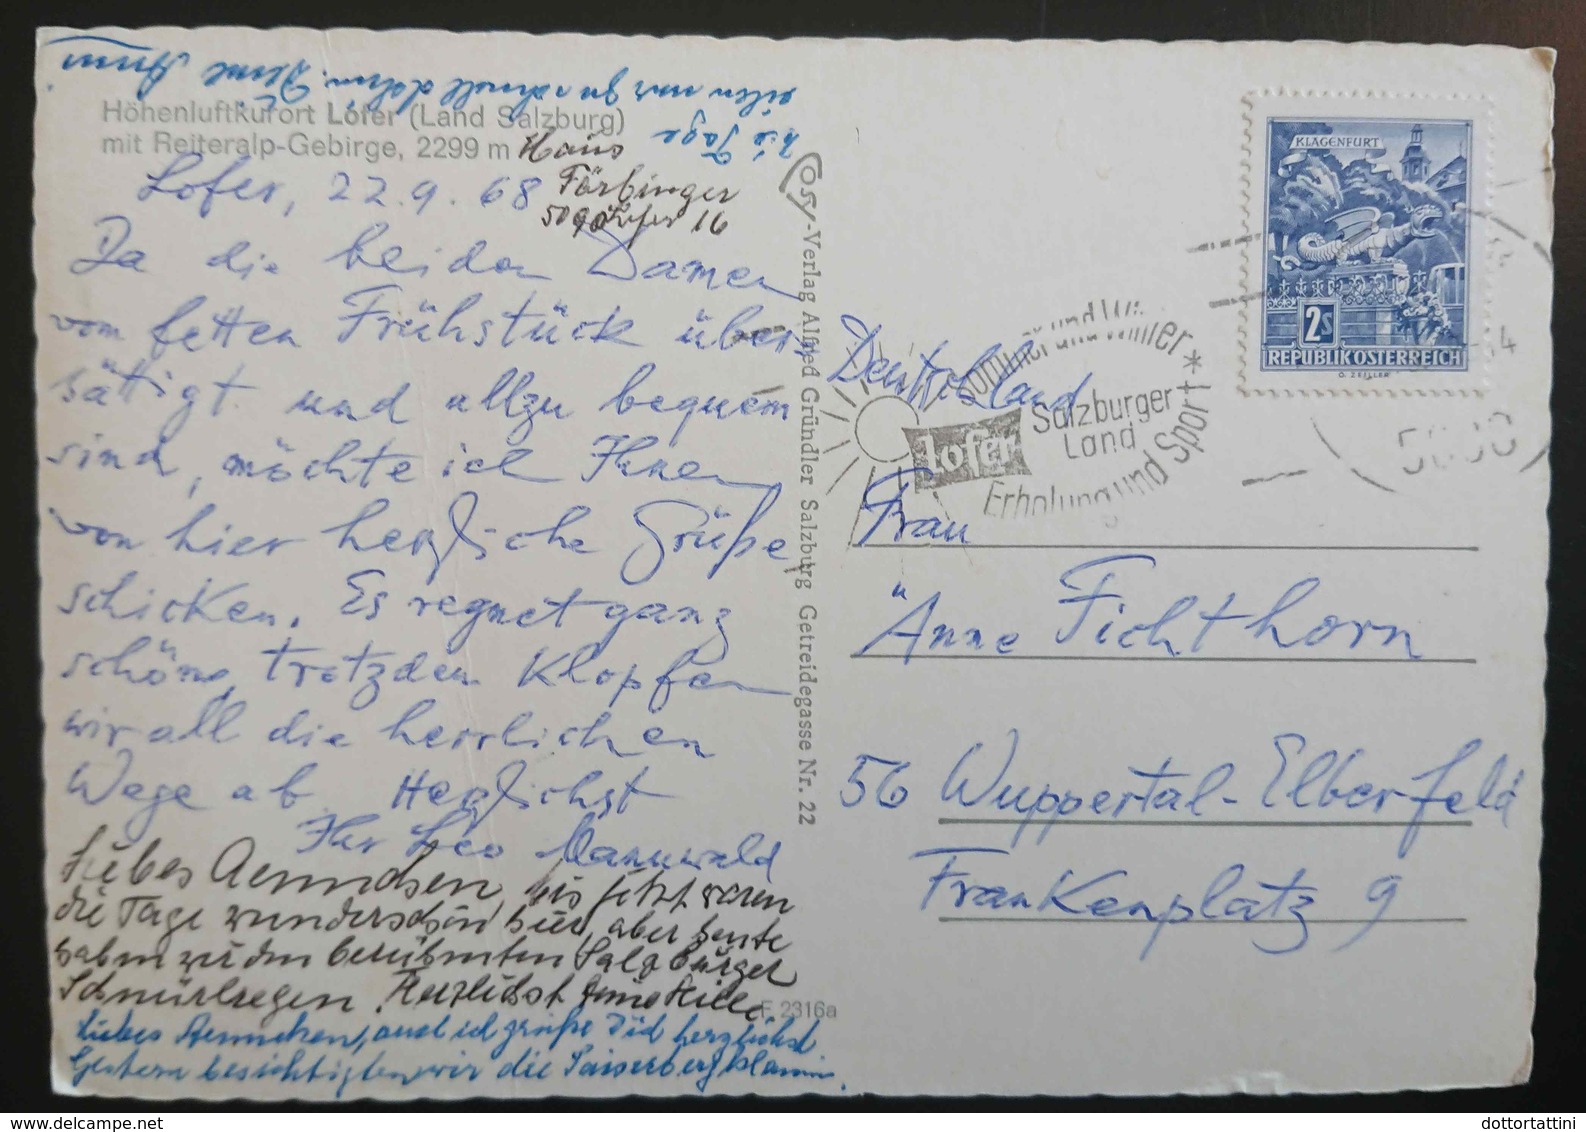 Höhenluftkurort Lofer (Land Salzburg)
mit Reiteralp-Gebirge, 2299 m
Haus
Färbinger
5090 Lofer 16
Lofer, 22.9.68
Da die beiden Damen
vom fetten Frühstück über
sättigt und allzu bequem
sind, möchte ich Ihnen
von hier herzliche Grüße
schicken. Es regnet ganz
schön, trotzdem klopfen
wir all die herrlichen
Wege ab. Herzlichst
Ihr Leo Mannwald
Liebes Aennchen, bis jetzt waren
die Tage wunderschön hier, aber heute
haben wir den berühmten Salzburger
Schnürlregen. Herzlichst Deine Hilde
Liebes Aennchen, auch ich grüße Dich herzlichst
Gestern besichtigten wir die Saisenbergklamm.
Die Tage
eilen nur zu schnell dahin. Deine Anni
Cosy-Verlag Alfred Gründler Salzburg Getreidegasse Nr. 22
F 2316a
KLAGENFURT
2S
REPUBLIK ÖSTERREICH
O. ZEILLER
Sommer und Winter * Sport
lofer
Salzburger
Land
Erholung und
Deutschland
Frau
Änne Fichthorn
56 Wuppertal-Elberfeld
Frankenplatz 9
dottortattini